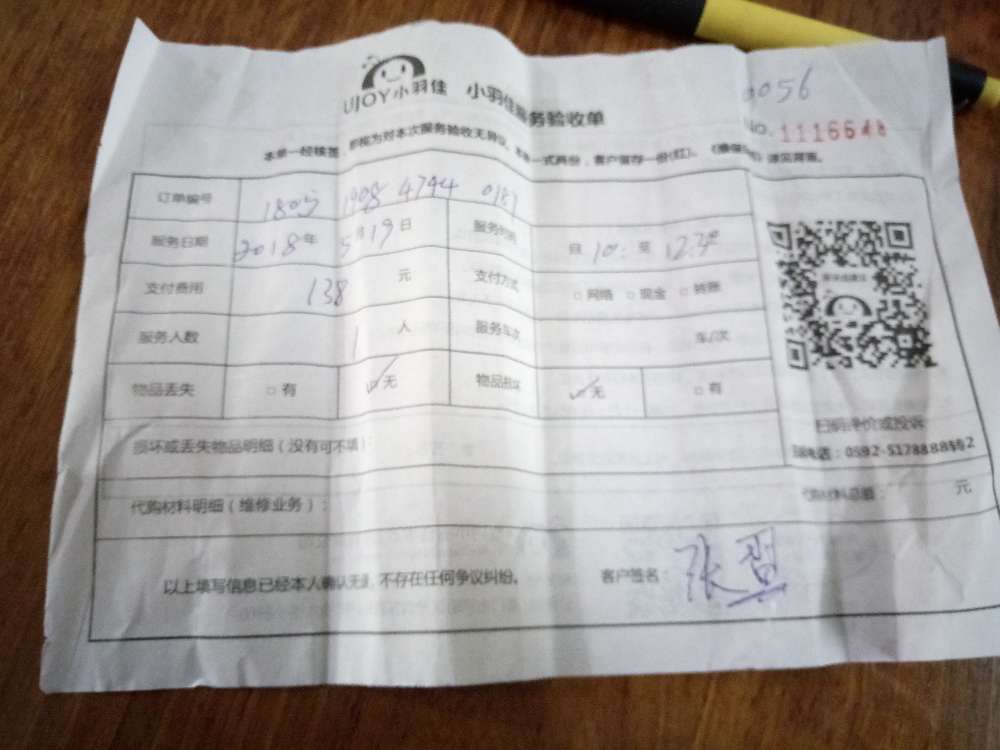 UJOY小羽佳 小羽佳服务验收单
0056
No. 1116648
本单一经核签，即视为对本次服务验收无异议。本单一式两份，客户留存一份(红)。 详见背面。
订单编号 1805 1908 4794 0181
服务日期 2018年5月19日 服务时间 自10: 至12:30
支付费用 138 元 支付方式 □网络 □现金 □转账
服务人数 1 人 服务车次 车/次
物品丢失 □有 ☑无 物品损坏 ☑无 □有
损坏或丢失物品明细（没有可不填）
代购材料明细（维修业务）： 代购材料总额： 元
以上填写信息已经本人确认无误，不存在任何争议纠纷。 客户签名：张
扫码评价或投诉
电话：0592-5178888转2